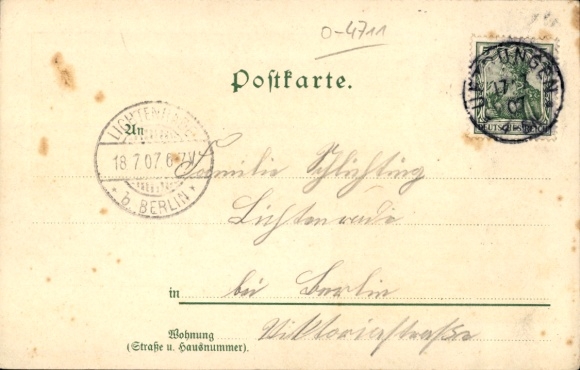 0-4711
Postkarte.
UFTRUNGEN
17 7
07
DEUTSCHES REICH
An
LICHTENRADE
18.7.07.6-7V.
* b. BERLIN *
Familie Schlichting
Lichtenrade
in bei Berlin
Wohnung Viktoriastraße
(Straße u. Hausnummer).